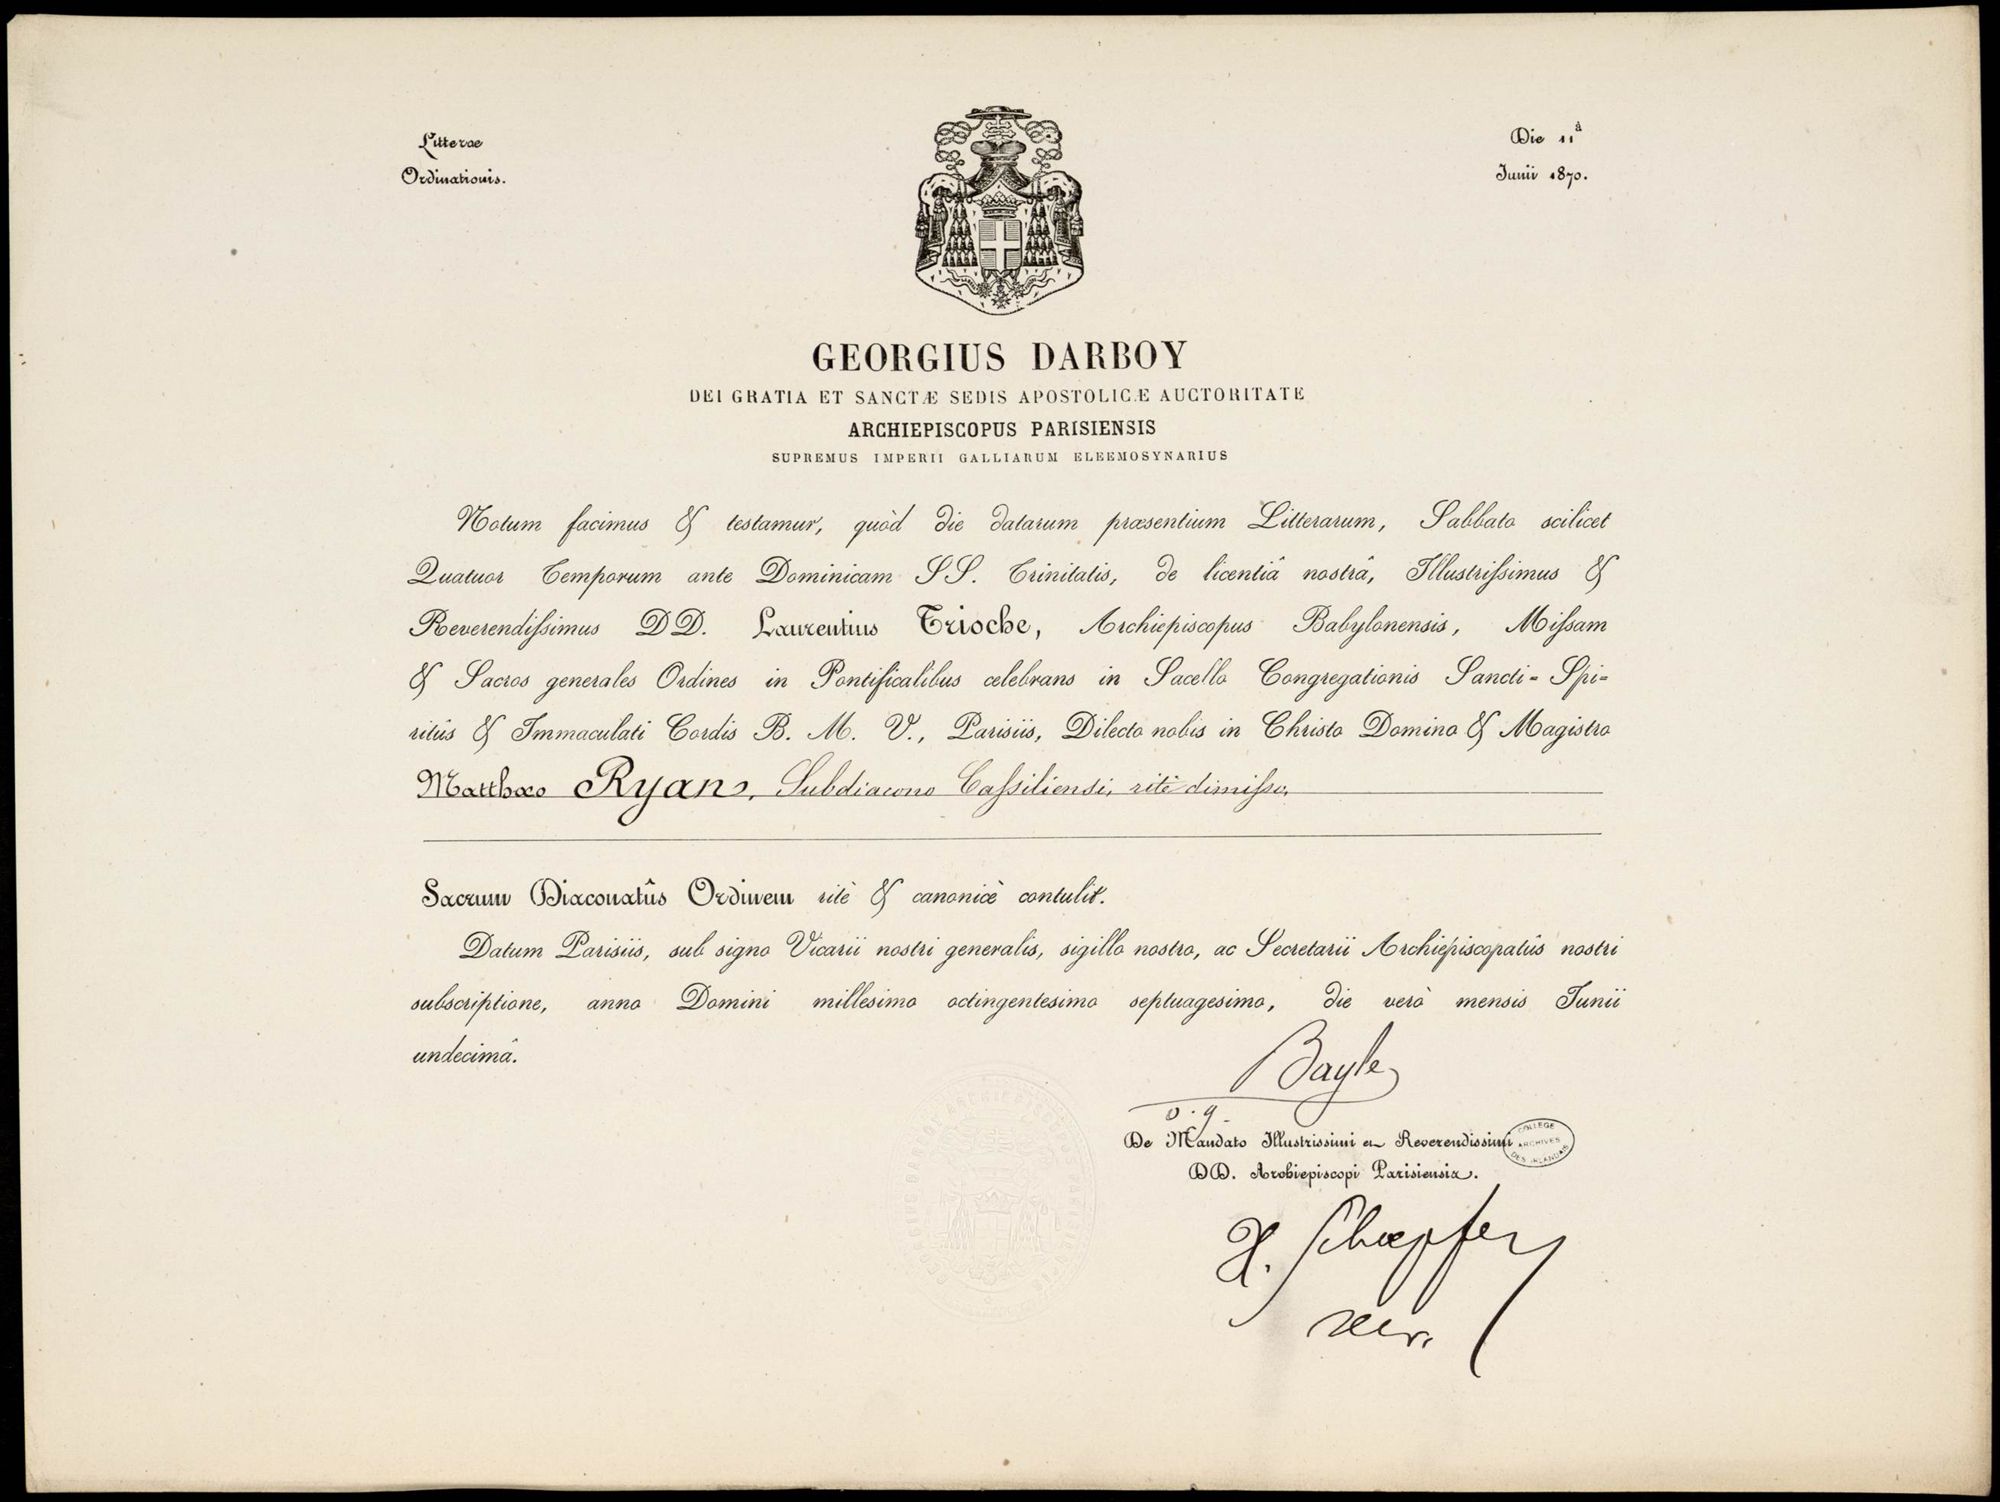 Litterae
Ordinationis.
Die 11ª
Junii 1870.
GEORGIUS DARBOY
DEI GRATIA ET SANCTÆ SEDIS APOSTOLICÆ AUCTORITATE
ARCHIEPISCOPUS PARISIENSIS
SUPREMUS IMPERII GALLIARUM ELEEMOSYNARIUS
Notum facimus & testamur, quòd die datarum præsentium Litterarum, Sabbato scilicet
Quatuor Temporum ante Dominicam SS. Trinitatis, de licentiâ nostrâ, Illustrissimus &
Reverendissimus DD. Laurentius Trioche, Archiepiscopus Babylonensis, Missam
& Sacros generales Ordines in Pontificalibus celebrans in Sacello Congregationis Sancti-Spi-
ritûs & Immaculati Cordis B. M. V., Parisiis, Dilecto nobis in Christo Domino & Magistro
Matthæo Ryan, Subdiacono Cassiliensi, ritè dimisso,
Sacrum Diaconatûs Ordinem ritè & canonicè contulit.
Datum Parisiis, sub signo Vicarii nostri generalis, sigillo nostro, ac Secretarii Archiepiscopatûs nostri
subscriptione, anno Domini millesimo octingentesimo septuagesimo, die verò mensis Junii
undecimâ.
Bayle
v. g.
De Mandato Illustrissimi et Reverendissimi
DD. Archiepiscopi Parisiensis.
COLLEGE
ARCHIVES
DES IRLANDAIS
H. Schoepfer